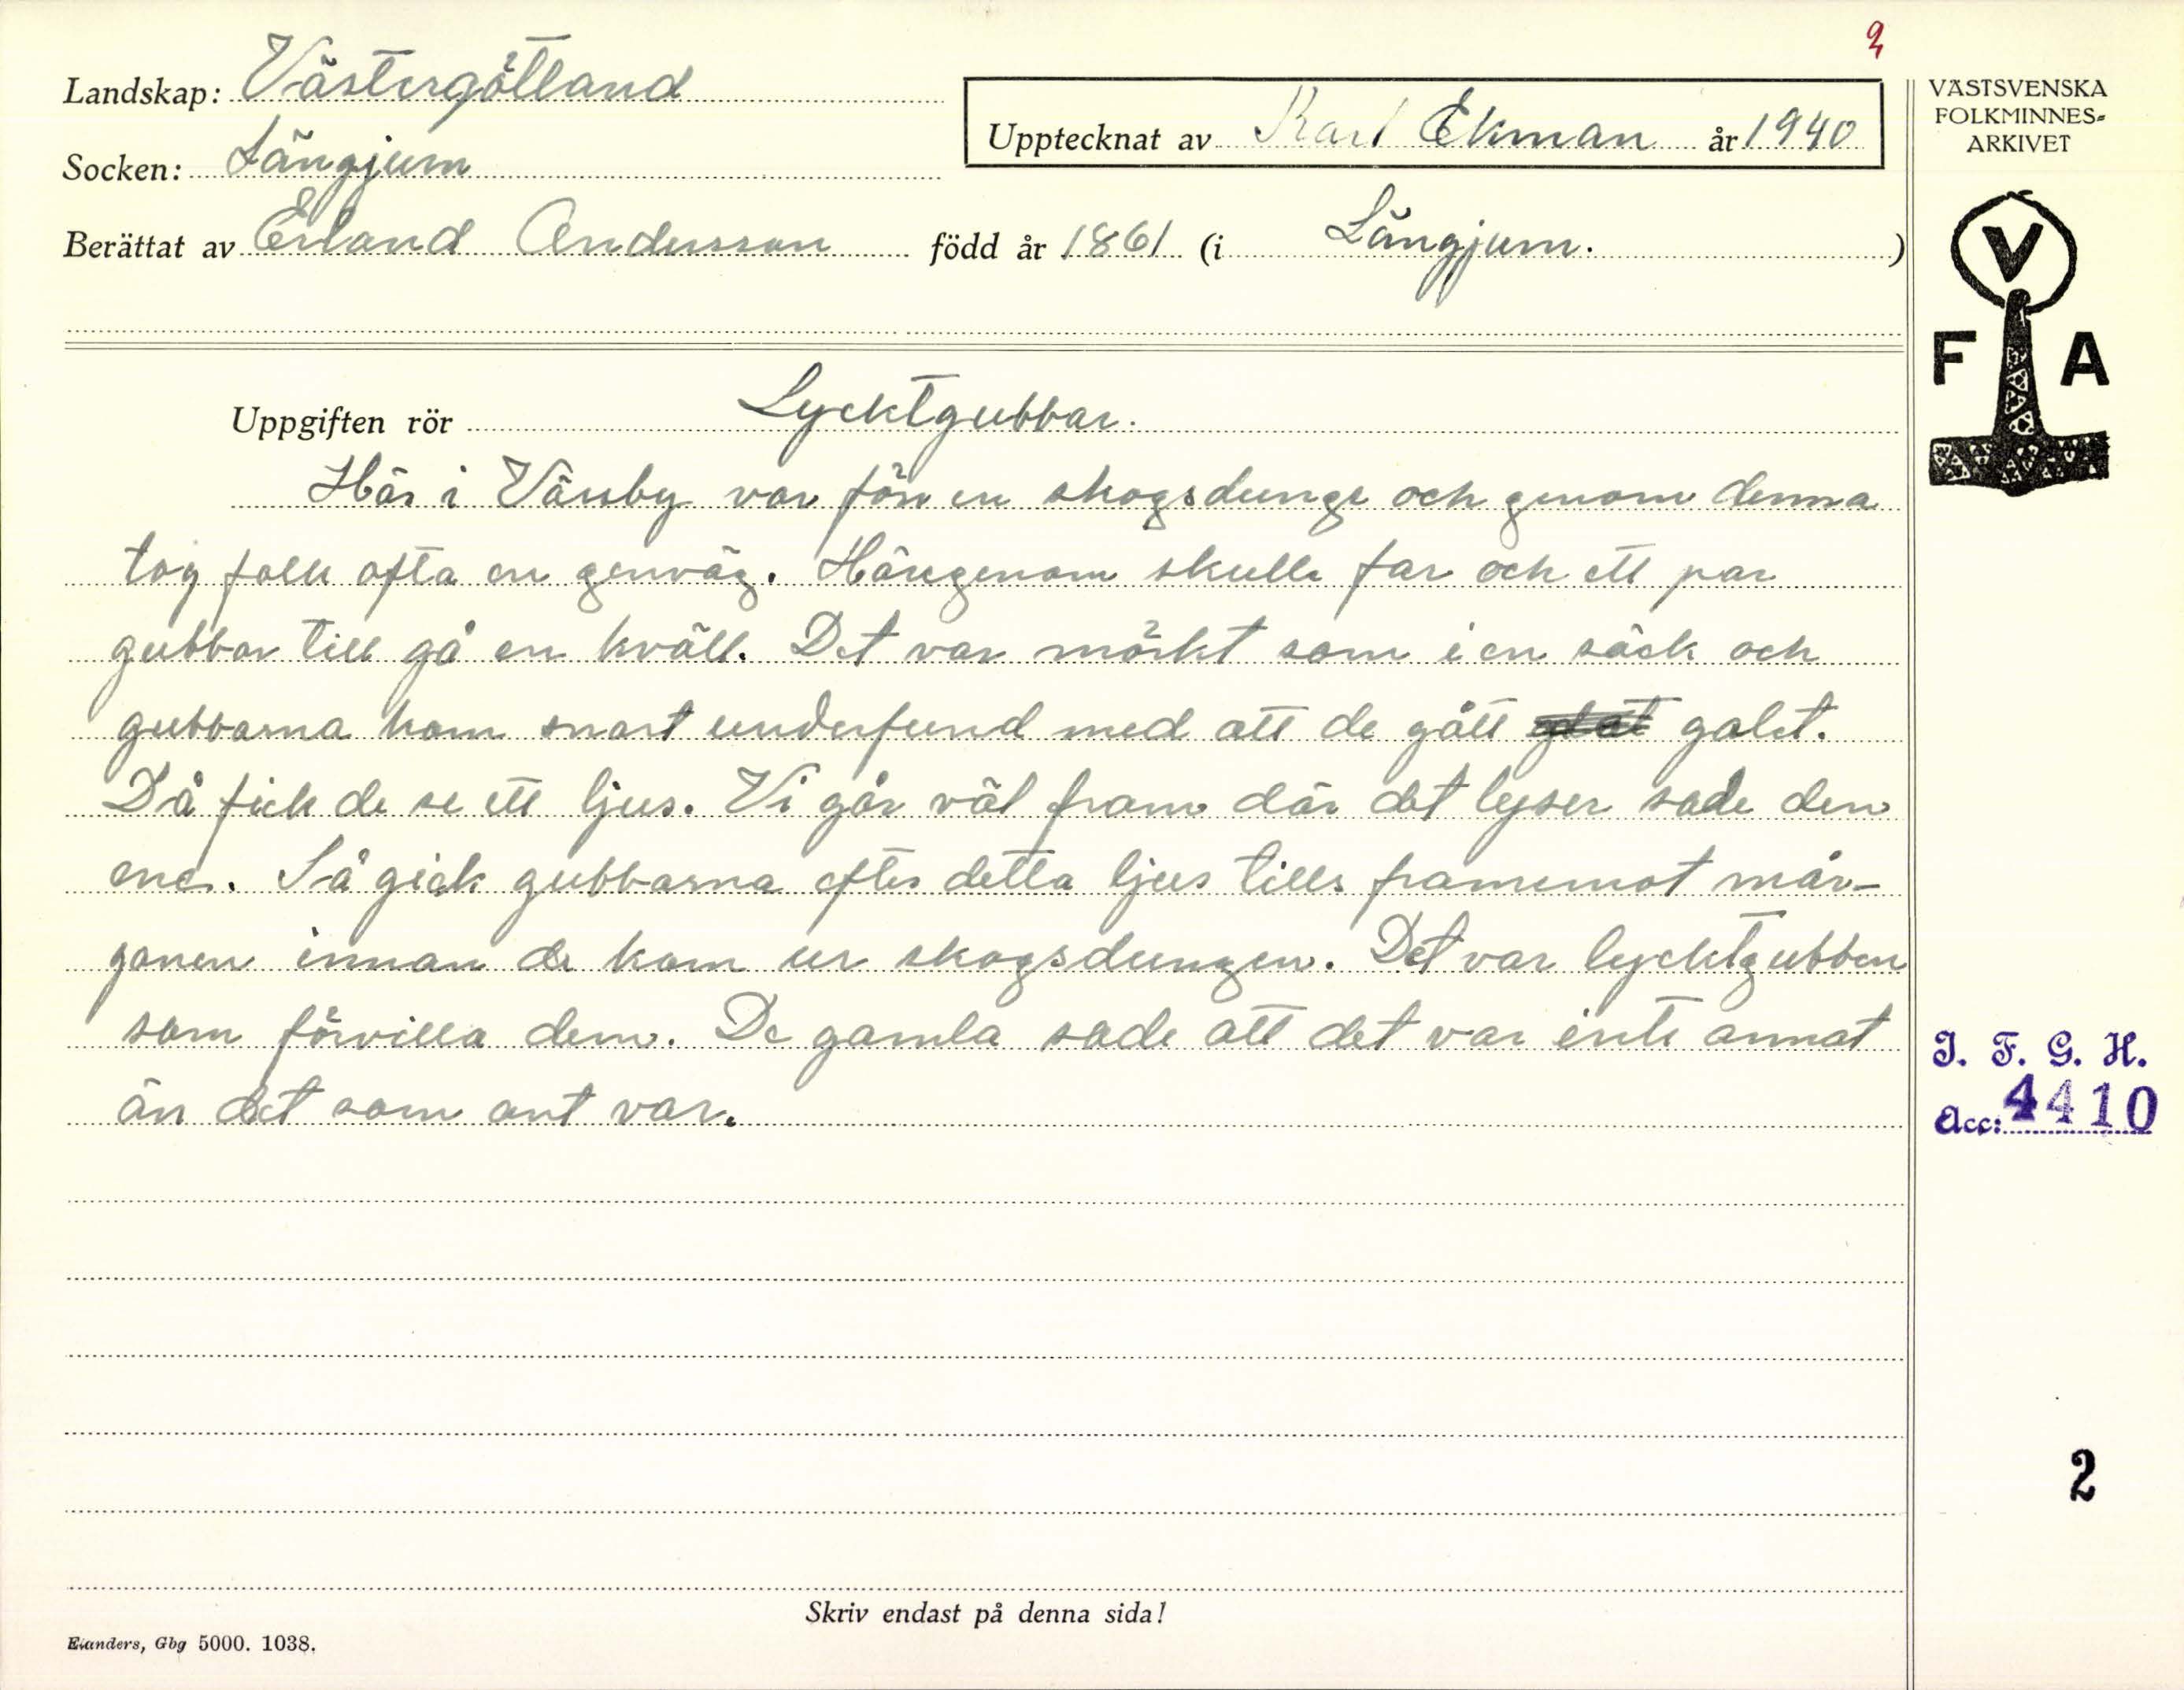 2
Landskap: Västergötland
Upptecknat av Karl Ekman år 1940
Socken: Längjum
Berättat av Erland Andersson född år 1861 (i Längjum.)
VÄSTSVENSKA
FOLKMINNES=
ARKIVET
V
F A
Uppgiften rör Lycktgubbar.
Här i Vänby var förr en skogsdunge och genom denna
tog folk ofta en genväg. Härigenom skulle far och ett par
gubbar till gå en kväll. Det var mörkt som i en säck och
gubbarna kom snart underfund med att de gått galet.
Då fick de se ett ljus. Vi går väl fram där det lyser sade den
ene. Så gick gubbarna efter detta ljus tills framemot mår-
gonen innan de kom ur skogsdungen. Det var lycktgubben
som förvilla dem. De gamla sade att det var inte annat
än det som ont var.
I. F. G. H.
Acc: 4410
2
Skriv endast på denna sida!
Elanders, Gbg 5000. 1038.